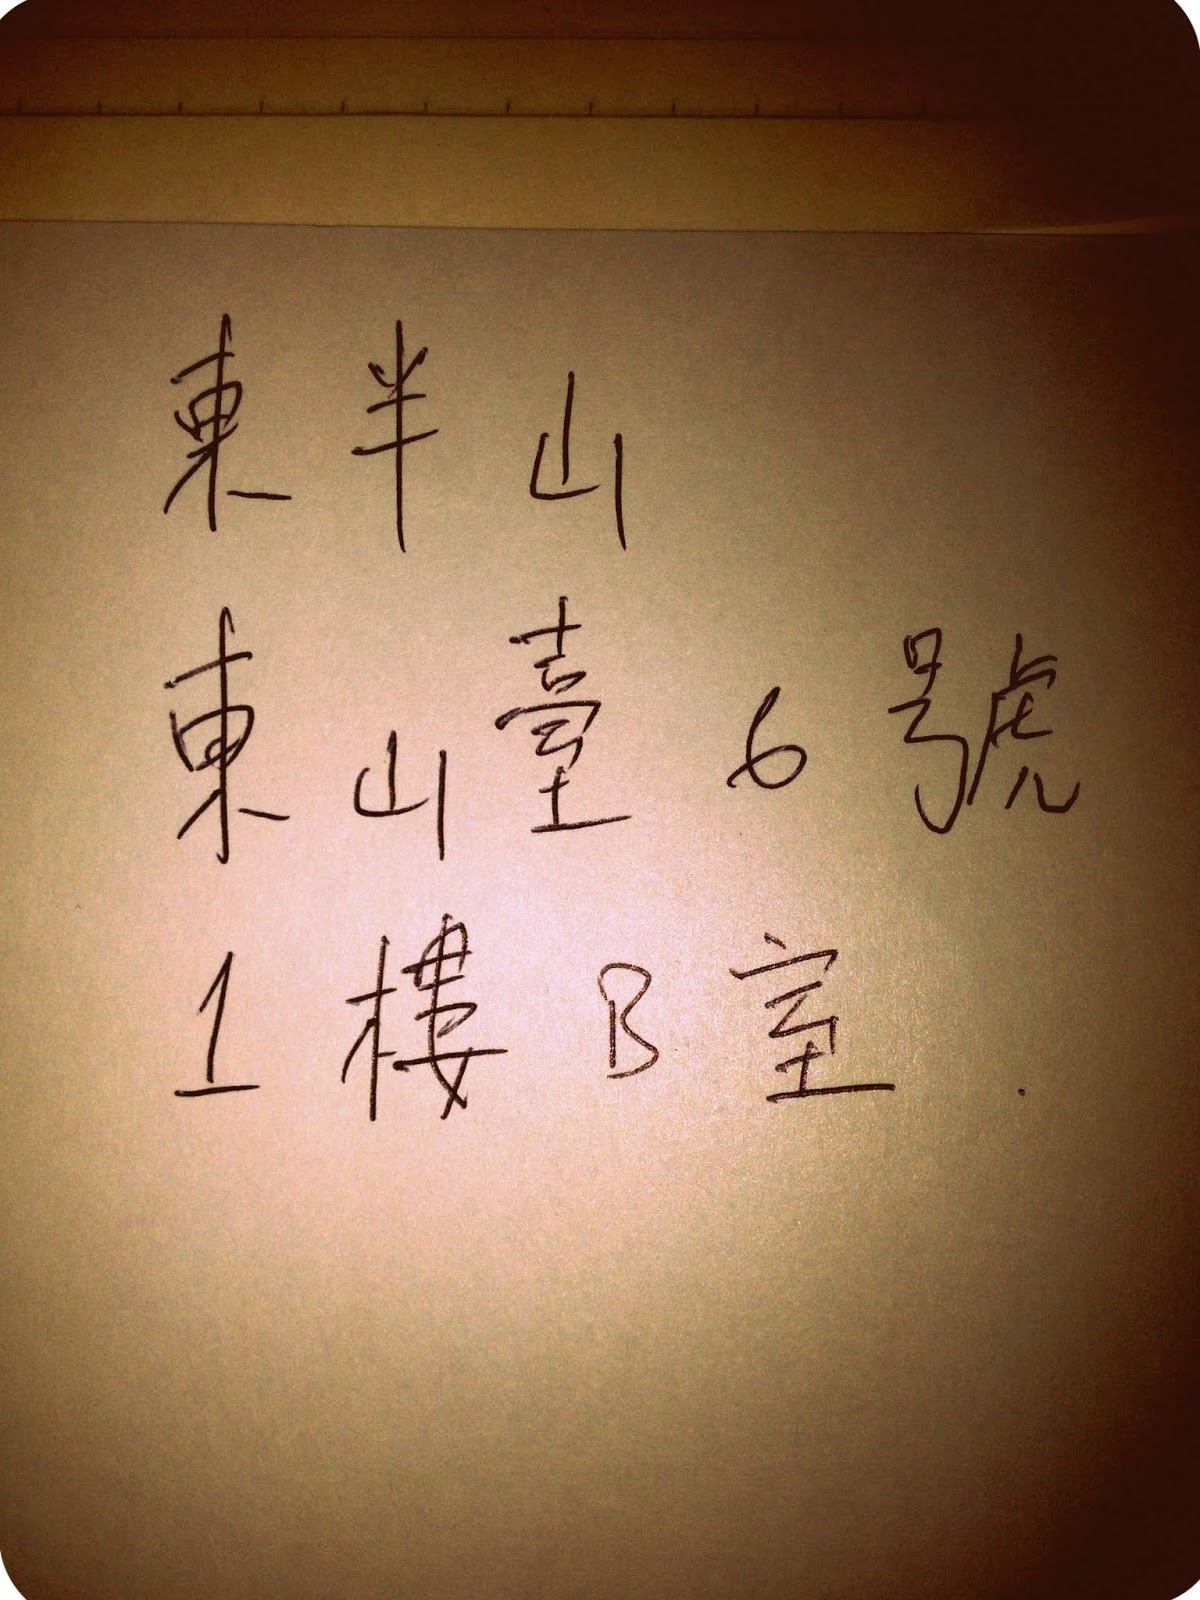 東半山
東山臺 6 號
1 樓 B 室.